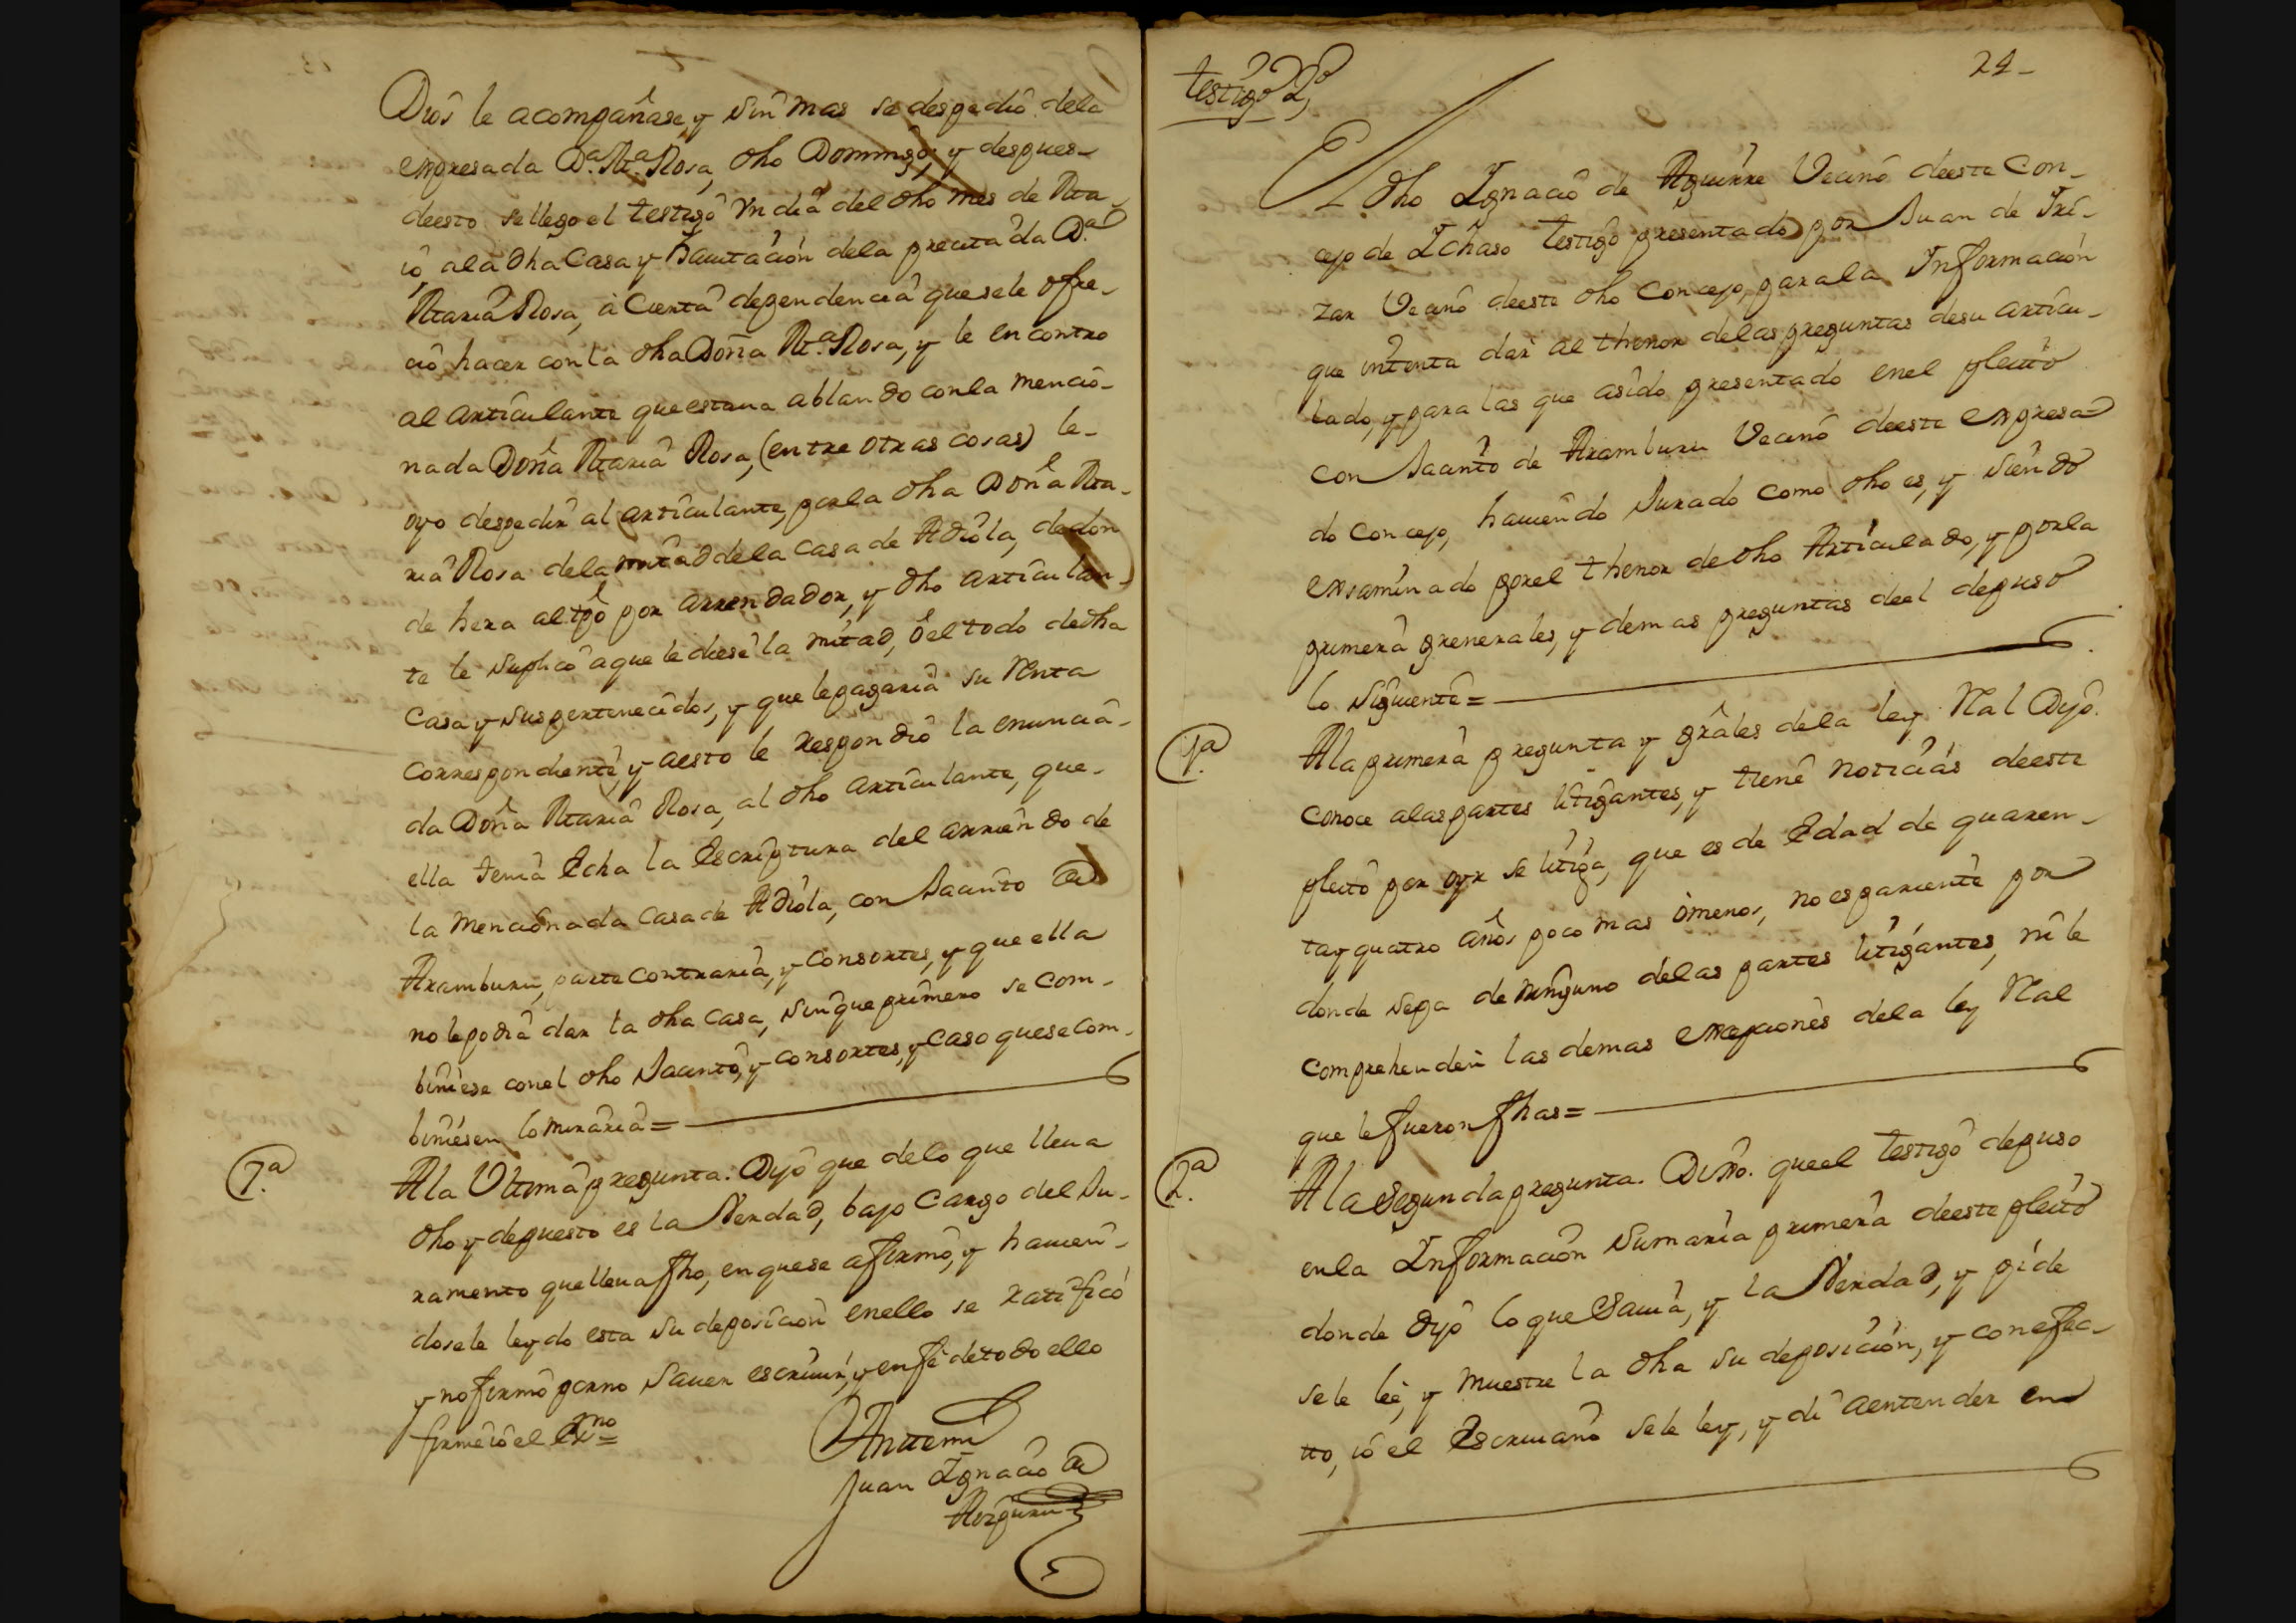 Dios le acompañase y sin mas se despedio dela
expresada Da. Ma. Rosa, dho Domingo; y despues
deesto se llego el testigo Vn dia del dho mes de Ma-
io, ala dha Casa y hauitacion dela precita da Da.
Maria Rosa, a Cierta dependencia que sele ofre-
cio hacer con la dha Doña Ma. Rosa, y le encontro
al articulante que estaua ablando conla mencio-
nada Doña Maria Rosa, (entre otras cosas) le
oyo despedir al articulante, porla dha Doña Ma-
ria Rosa dela mitad dela casa de Adiola, dedon
de hera al tpo por arrendador, y dho articulan-
te le suplico aque le diese la mitad, o el todo dedha
Casa y sus pertenecidos, y que le pagaria su Renta
correspondiente, y aesto le respondio la enuncia-
da Doña Maria Rosa, al dho articulante, que
ella tenia Echa la Escriptura del arriendo de
la mencionada Casa de Adiola, con Jacinto de
Aramburu, parte contraria, y consortes, y que ella
no le podia dar la dha Casa, sin que primero se com-
biniese conel dho Jacinto, y consortes, y caso que se com-
biniesen lo miraria =
7a. Ala Vltima pregunta. Dijo que delo que lleua
dho y depuesto es la Verdad, bajo cargo del Ju-
ramento que lleua fho, en que se afirmo, y hauien-
dosele leydo esta su deposicion enello se ratifico
y no firmo por no sauer escriuir, y en fe de todo ello
firme io el Exno =
Antemi
Juan Ignacio de
24-
testigo 2o
El dho Ignacio de Aguirre Vecino deeste Con-
cejo de Ichaso testigo presentado por Juan de Iri-
zar Vecino deeste dho concejo, parala Informacion
que intenta dar al thenor delas preguntas desu articu-
lado, y para las que asido presentado enel pleito
con Jacinto de Aramburu Vecino deeste expresa
do concejo, hauiendo Jurado como dho es, y siendo
exsaminado porel thenor de dho Articulado, y porla
primera grenerales, y demas preguntas deel depuso
lo siguiente =
1a. Ala primera pregunta y grales dela ley Ral Dijo.
conoce alas partes litigantes, y tiene noticias deeste
pleito por oyr se litiga, que es de Edad de quaren-
tay quatro años poco mas o menos, no es pariente por
donde sepa de ninguno delas partes litigantes, ni le
comprehenden las demas excepciones dela ley Ral
que le fueron fhas =
2a. Ala segunda pregunta. Dixo. queel testigo depuso
enla Informacion sumaria primera deeste pleito
donde dijo lo que sauia, y la Verdad, y pide
sele lea, y muestre la dha su deposicion, y con efec-
tto, io el Escriuano sele ley, y di aentender en